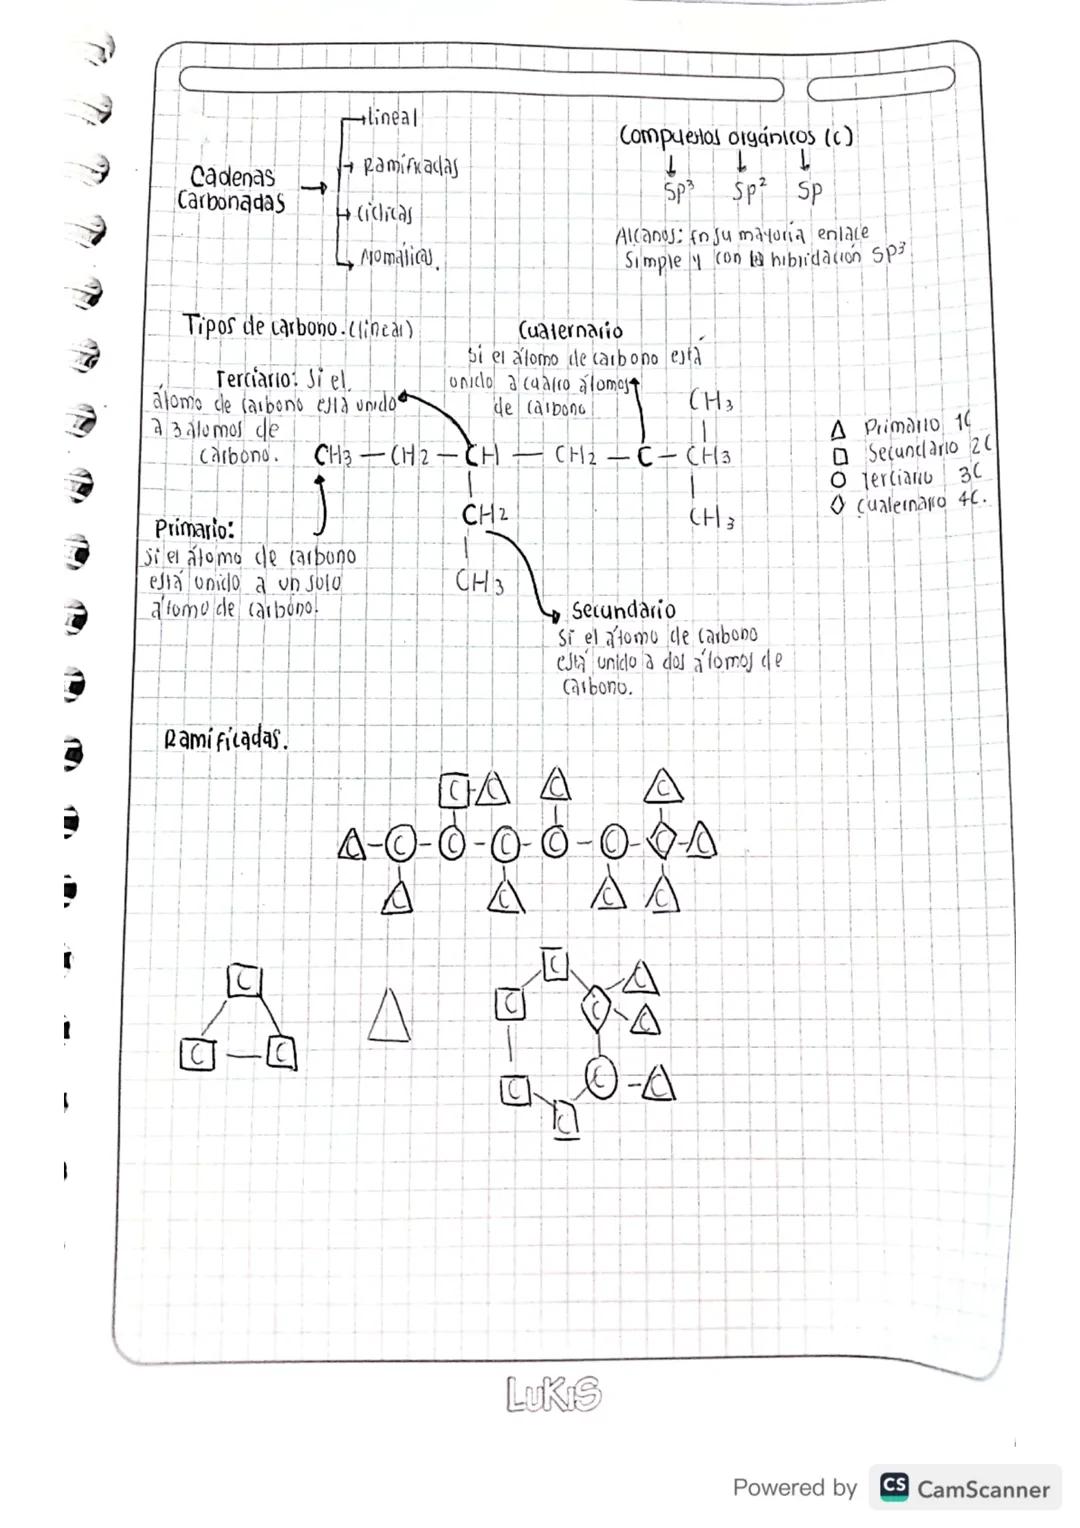 Cadenas
Carbonadas
lineal
Ramificadas
Cíclicas
Aromáticas.
Compuestos orgánicos (C)
Sp³ Sp² Sp
Alcanos: En su mayoría enlace
Simple y con la hibridación Sp³
Tipos de carbono. (lineal)
Terciario: Si el
átomo de carbono está unido
a 3 átomos de
carbono.
Cuaternario
Si el átomo de carbono está
unido a cuatro átomos
de carbono
CH3
CH3 — CH2 — CH — CH2 — C — CH3
CH2
CH3
CH3
△ Primario 1C
□ Secundario 2C
○ Terciario 3C
◊ Cuaternario 4C.
Primario:
Si el átomo de carbono
está unido a un solo
átomo de carbono.
Secundario
Si el átomo de carbono
está unido a dos átomos de
carbono.
Ramificadas.
C C C C
C - C - C - C - C - C - C - C
C C C C
C
C — C
C
C C C
C
C C - C
C
LUKIS
Powered by CS CamScanner